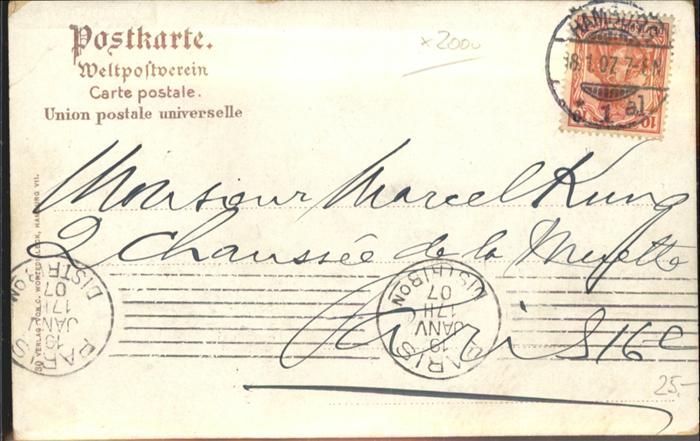 Postkarte.
Weltpostverein
Carte postale.
Union postale universelle
x2000
HAMBURG
18.1.07.7-8N
* 1 al
10
Monsieur Marcel Kung
2 Chaussée de la Muette
Paris 16e
PARIS
19
JANV
17H
07
DISTRIBON
PARIS
19
JANV
17H
07
DISTRIBON
25.-
VERLAG VON C. WORZEDIALECK, HAMBURG VII.